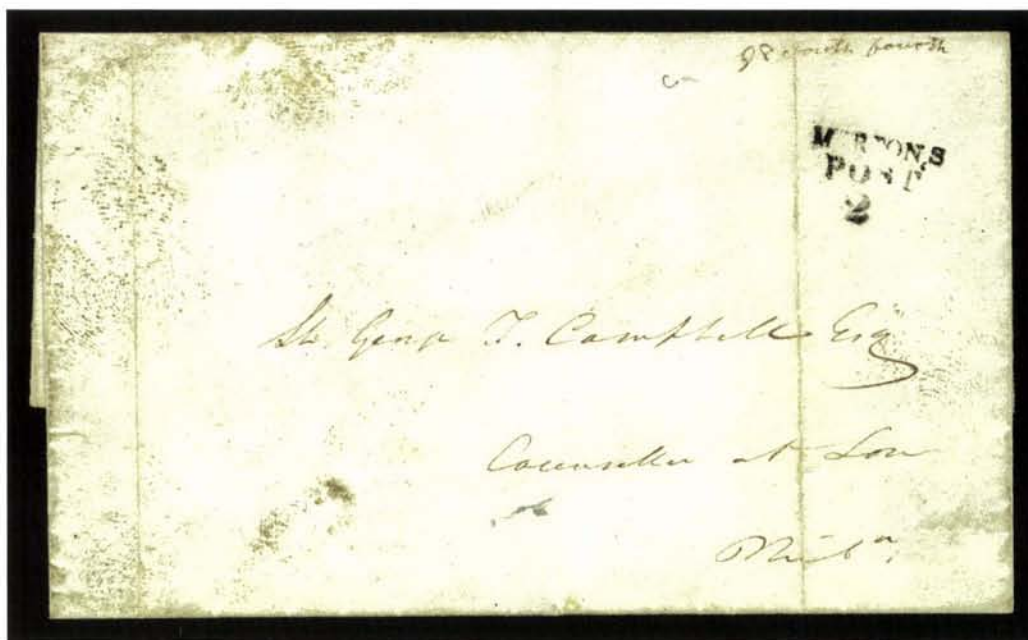 98 South fourth
MERTON'S
POST
2
St. George T. Campbell Esqr
Counseller at Law
Phila